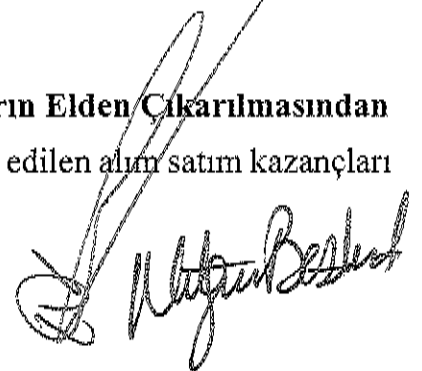 rın Elden Çıkarılmasından
edilen alım satım kazançları